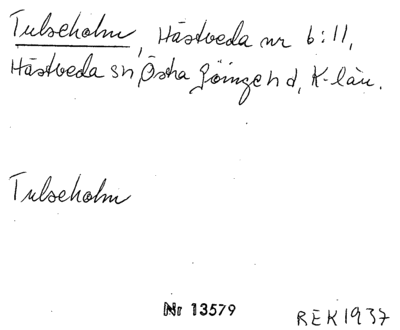 Tulseholm, Hästveda nr 6:11,
Hästveda sn, Östra Göinge hd, K-län.
Tulseholm
Nr 13579
REK1937